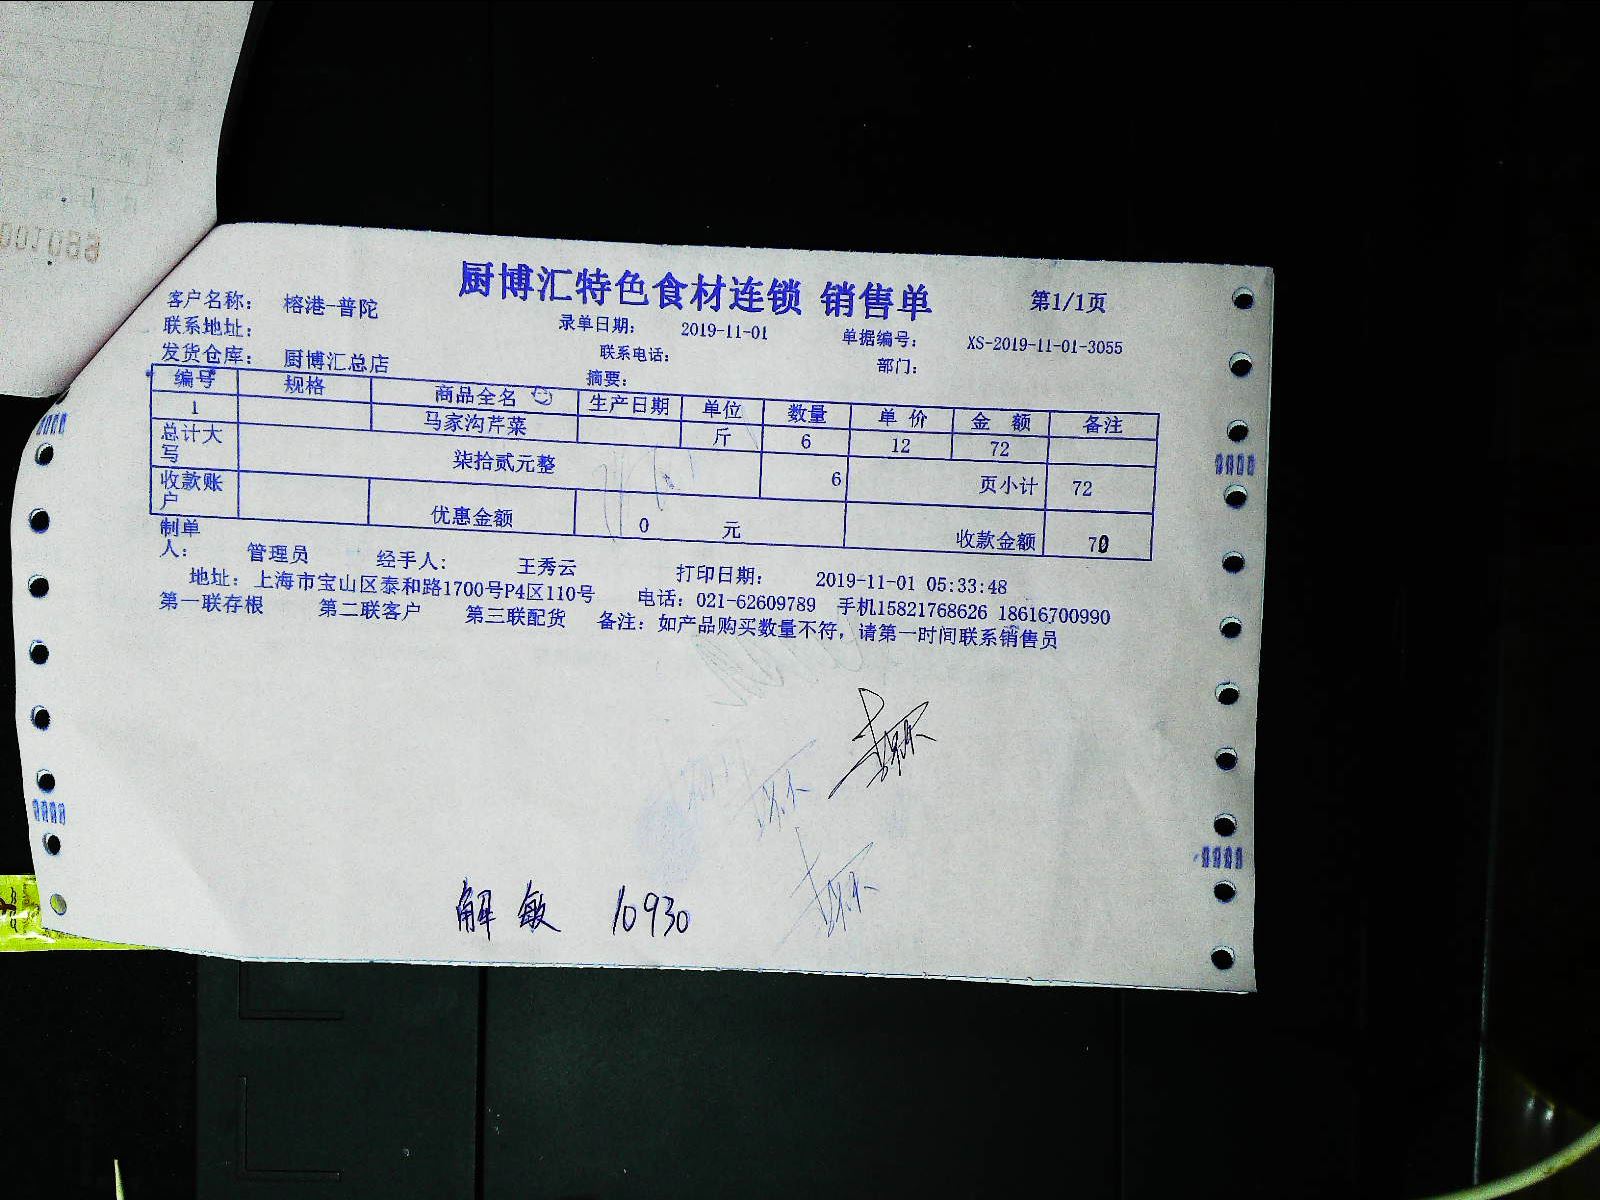 厨博汇特色食材连锁 销售单 第1/1页
客户名称： 榕港-普陀 录单日期： 2019-11-01 单据编号： XS-2019-11-01-3055
联系地址： 联系电话： 部门：
发货仓库： 厨博汇总店 摘要：
编号 规格 商品全名 生产日期 单位 数量 单 价 金 额 备注
1 马家沟芹菜 斤 6 12 72
总计大写 柒拾贰元整 6 页小计 72
收款账户 优惠金额 0 元 收款金额 70
制单人： 管理员 经手人： 王秀云 打印日期： 2019-11-01 05:33:48
地址：上海市宝山区泰和路1700号P4区110号 电话：021-62609789 手机15821768626 18616700990
第一联存根 第二联客户 第三联配货 备注：如产品购买数量不符，请第一时间联系销售员
解敏 10930